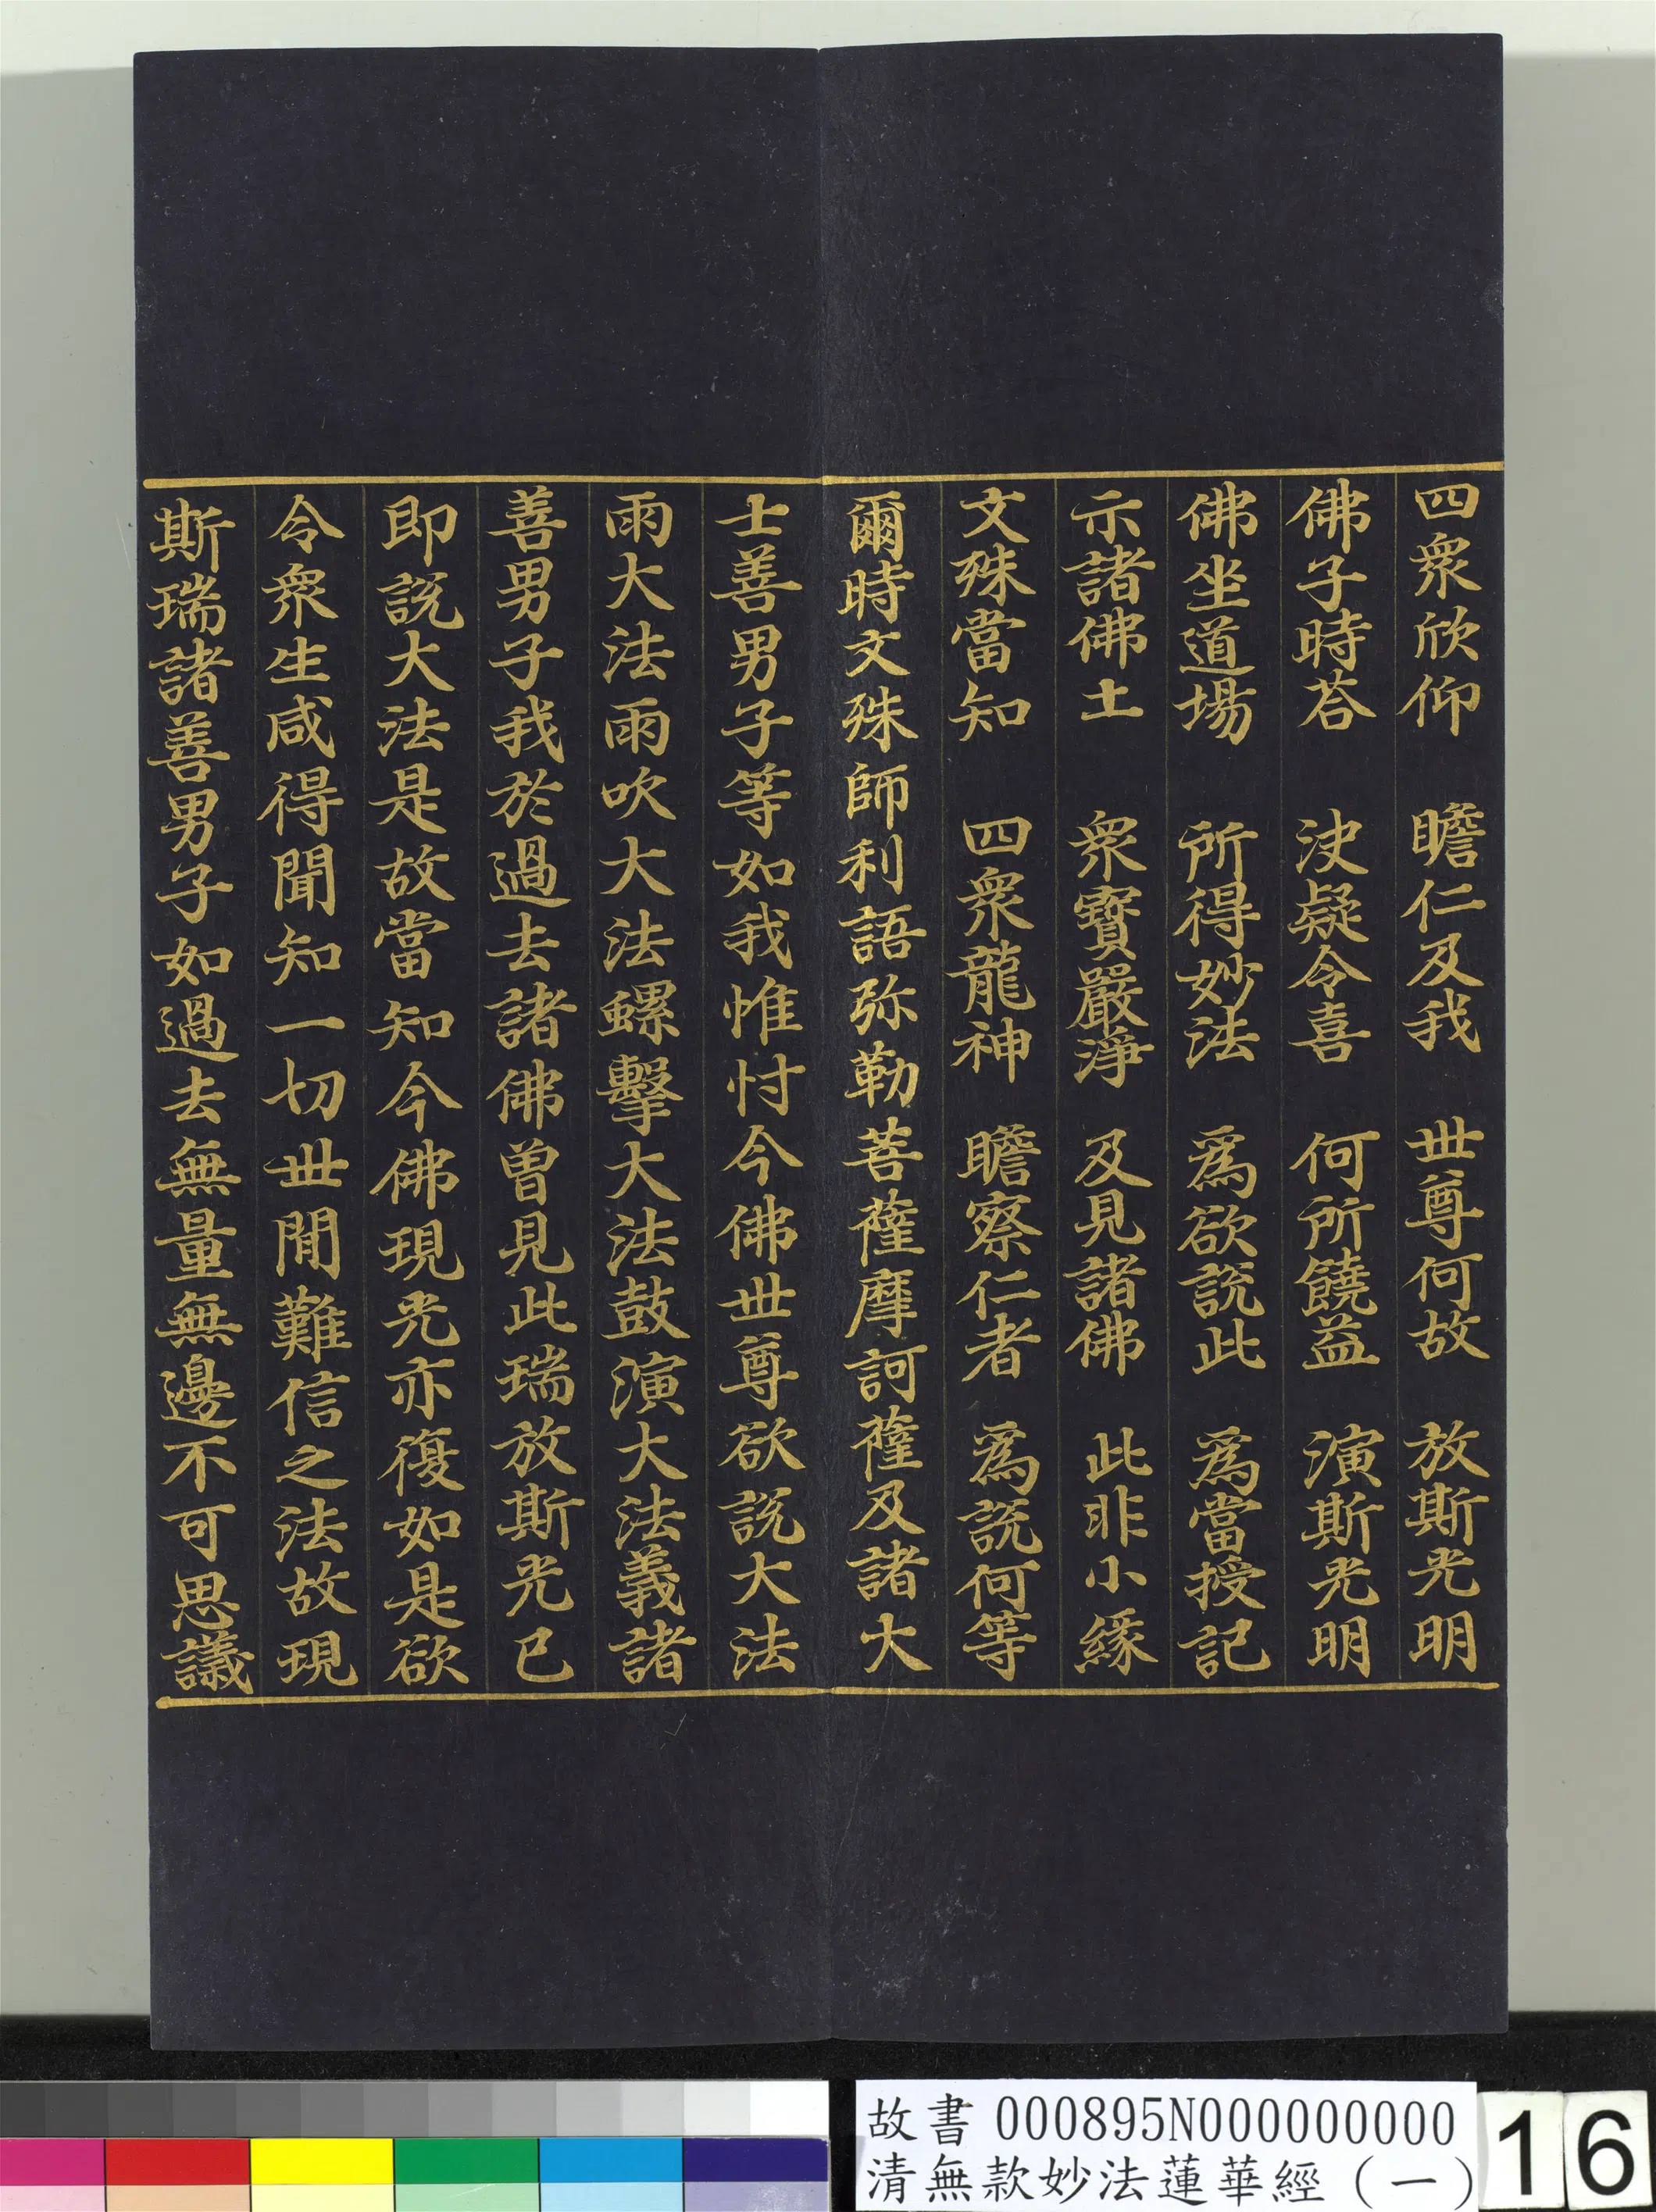 四衆欣仰　瞻仁及我　世尊何故　放斯光明
佛子時荅　決疑令喜　何所饒益　演斯光明
佛坐道場　所得妙法　爲欲說此　爲當授記
示諸佛土　衆寶嚴淨　及見諸佛　此非小緣
文殊當知　四衆龍神　瞻察仁者　爲說何等
爾時文殊師利語弥勒菩薩摩訶薩及諸大
士善男子等如我惟忖今佛世尊欲說大法
雨大法雨吹大法螺擊大法鼓演大法義諸
善男子我於過去諸佛曾見此瑞放斯光已
即說大法是故當知今佛現光亦復如是欲
令衆生咸得聞知一切世閒難信之法故現
斯瑞諸善男子如過去無量無邊不可思議
故書 000895N000000000
清無款妙法蓮華經（一）
16